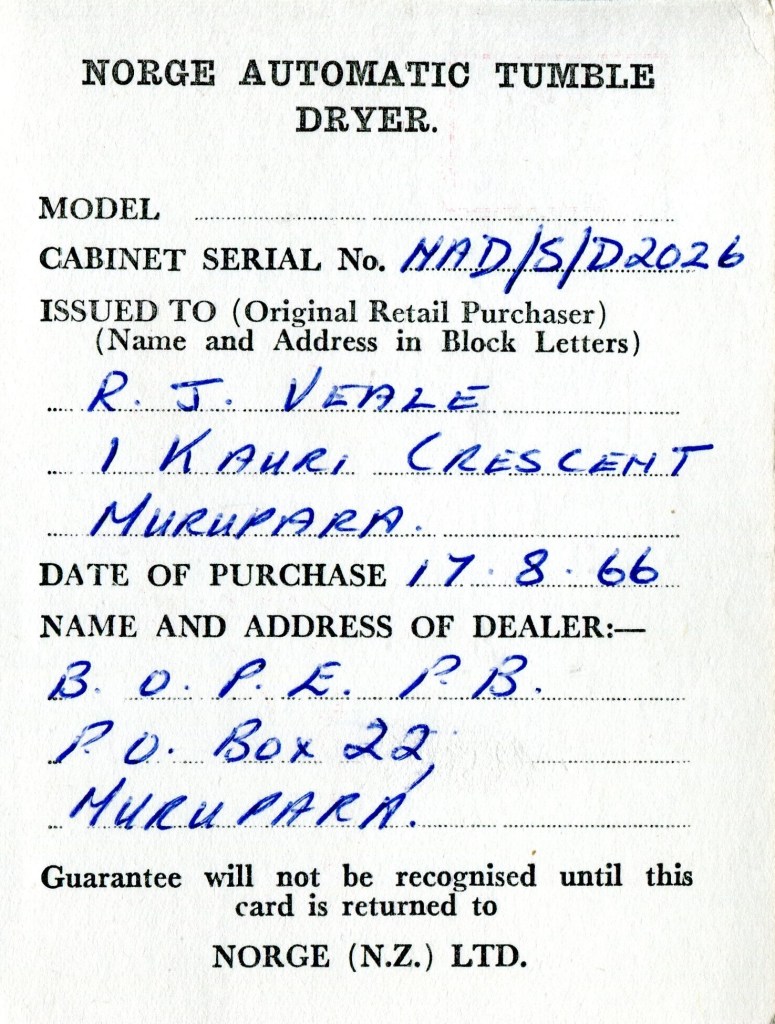 NORGE AUTOMATIC TUMBLE
DRYER.
MODEL
CABINET SERIAL No. NAD/S/D2026
ISSUED TO (Original Retail Purchaser)
(Name and Address in Block Letters)
R. J. VEALE
1 KAURI CRESCENT
MURUPARA.
DATE OF PURCHASE 17.8.66
NAME AND ADDRESS OF DEALER:—
B. O. P. E. P. B.
P. O. Box 22,
MURUPARA.
Guarantee will not be recognised until this
card is returned to
NORGE (N.Z.) LTD.